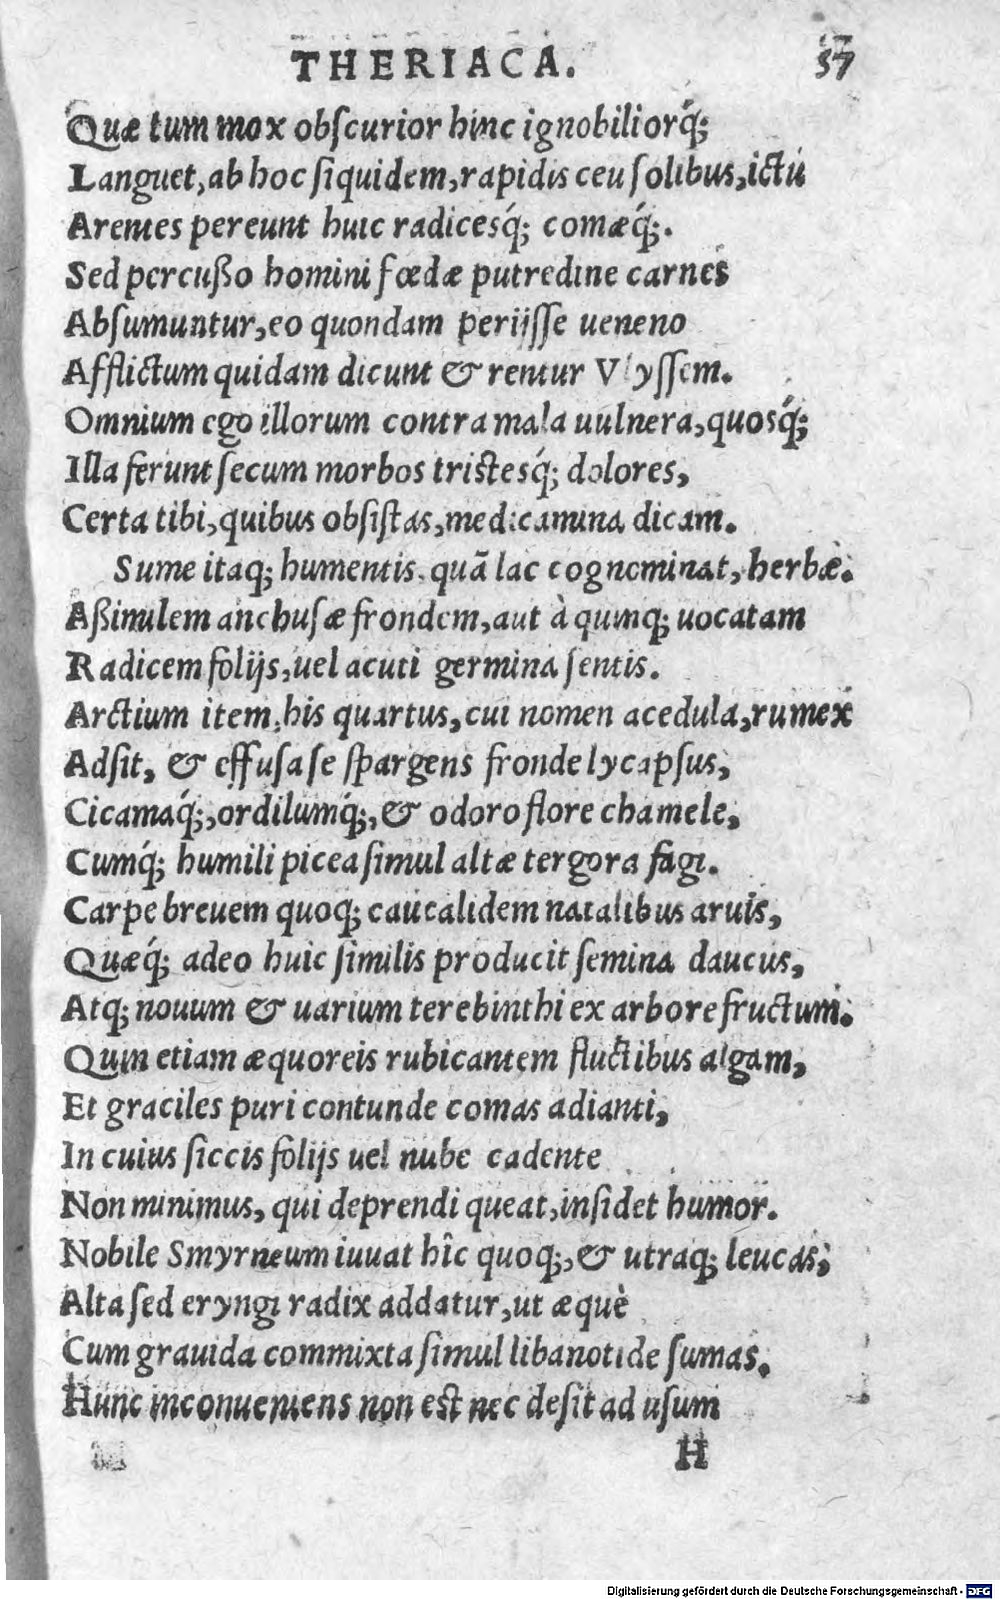 THERIACA. 57
Quæ tum mox obſcurior hinc ignobiliorq́;
Languet, ab hoc ſiquidem, rapidis ceu ſolibus, ictu
Arentes pereunt huic radicesq́; comæq́;.
Sed percußo homini fœdæ putredine carnes
Abſumuntur, eo quondam perijſſe ueneno
Afflictum quidam dicunt & rentur Vlyſſem.
Omnium ego illorum contra mala uulnera, quosq́;
Illa ferunt ſecum morbos tristesq́; dolores,
Certa tibi, quibus obſiſtas, medicamina dicam.
Sume itaq; humentis. quã lac cognominat, herbæ.
Aßimulem anchuſæ frondem, aut à quinq; uocatam
Radicem folijs, uel acuti germina ſentis.
Arctium item, his quartus, cui nomen acedula, rumex
Adſit, & effuſa ſe ſpargens fronde lycapſus,
Cicamaq́;, ordilumq́;, & odoro flore chamele,
Cumq́; humili picea ſimul altæ tergora fagi.
Carpe breuem quoq; caucalidem natalibus aruis,
Quæq́; adeo huic ſimilis producit ſemina daucus,
Atq; nouum & uarium terebinthi ex arbore fructum.
Quin etiam æquoreis rubicantem fluctibus algam,
Et graciles puri contunde comas adianti,
In cuius ſiccis folijs uel nube cadente
Non minimus, qui deprendi queat, inſidet humor.
Nobile Smyrneum iuuat hîc quoq;, & utraq; leucas,
Alta ſed eryngi radix addatur, ut æquè
Cum grauida commixta ſimul libanotide ſumas.
Hunc inconueniens non est nec deſit ad uſum
H
Digitalisierung gefördert durch die Deutsche Forschungsgemeinschaft - DFG